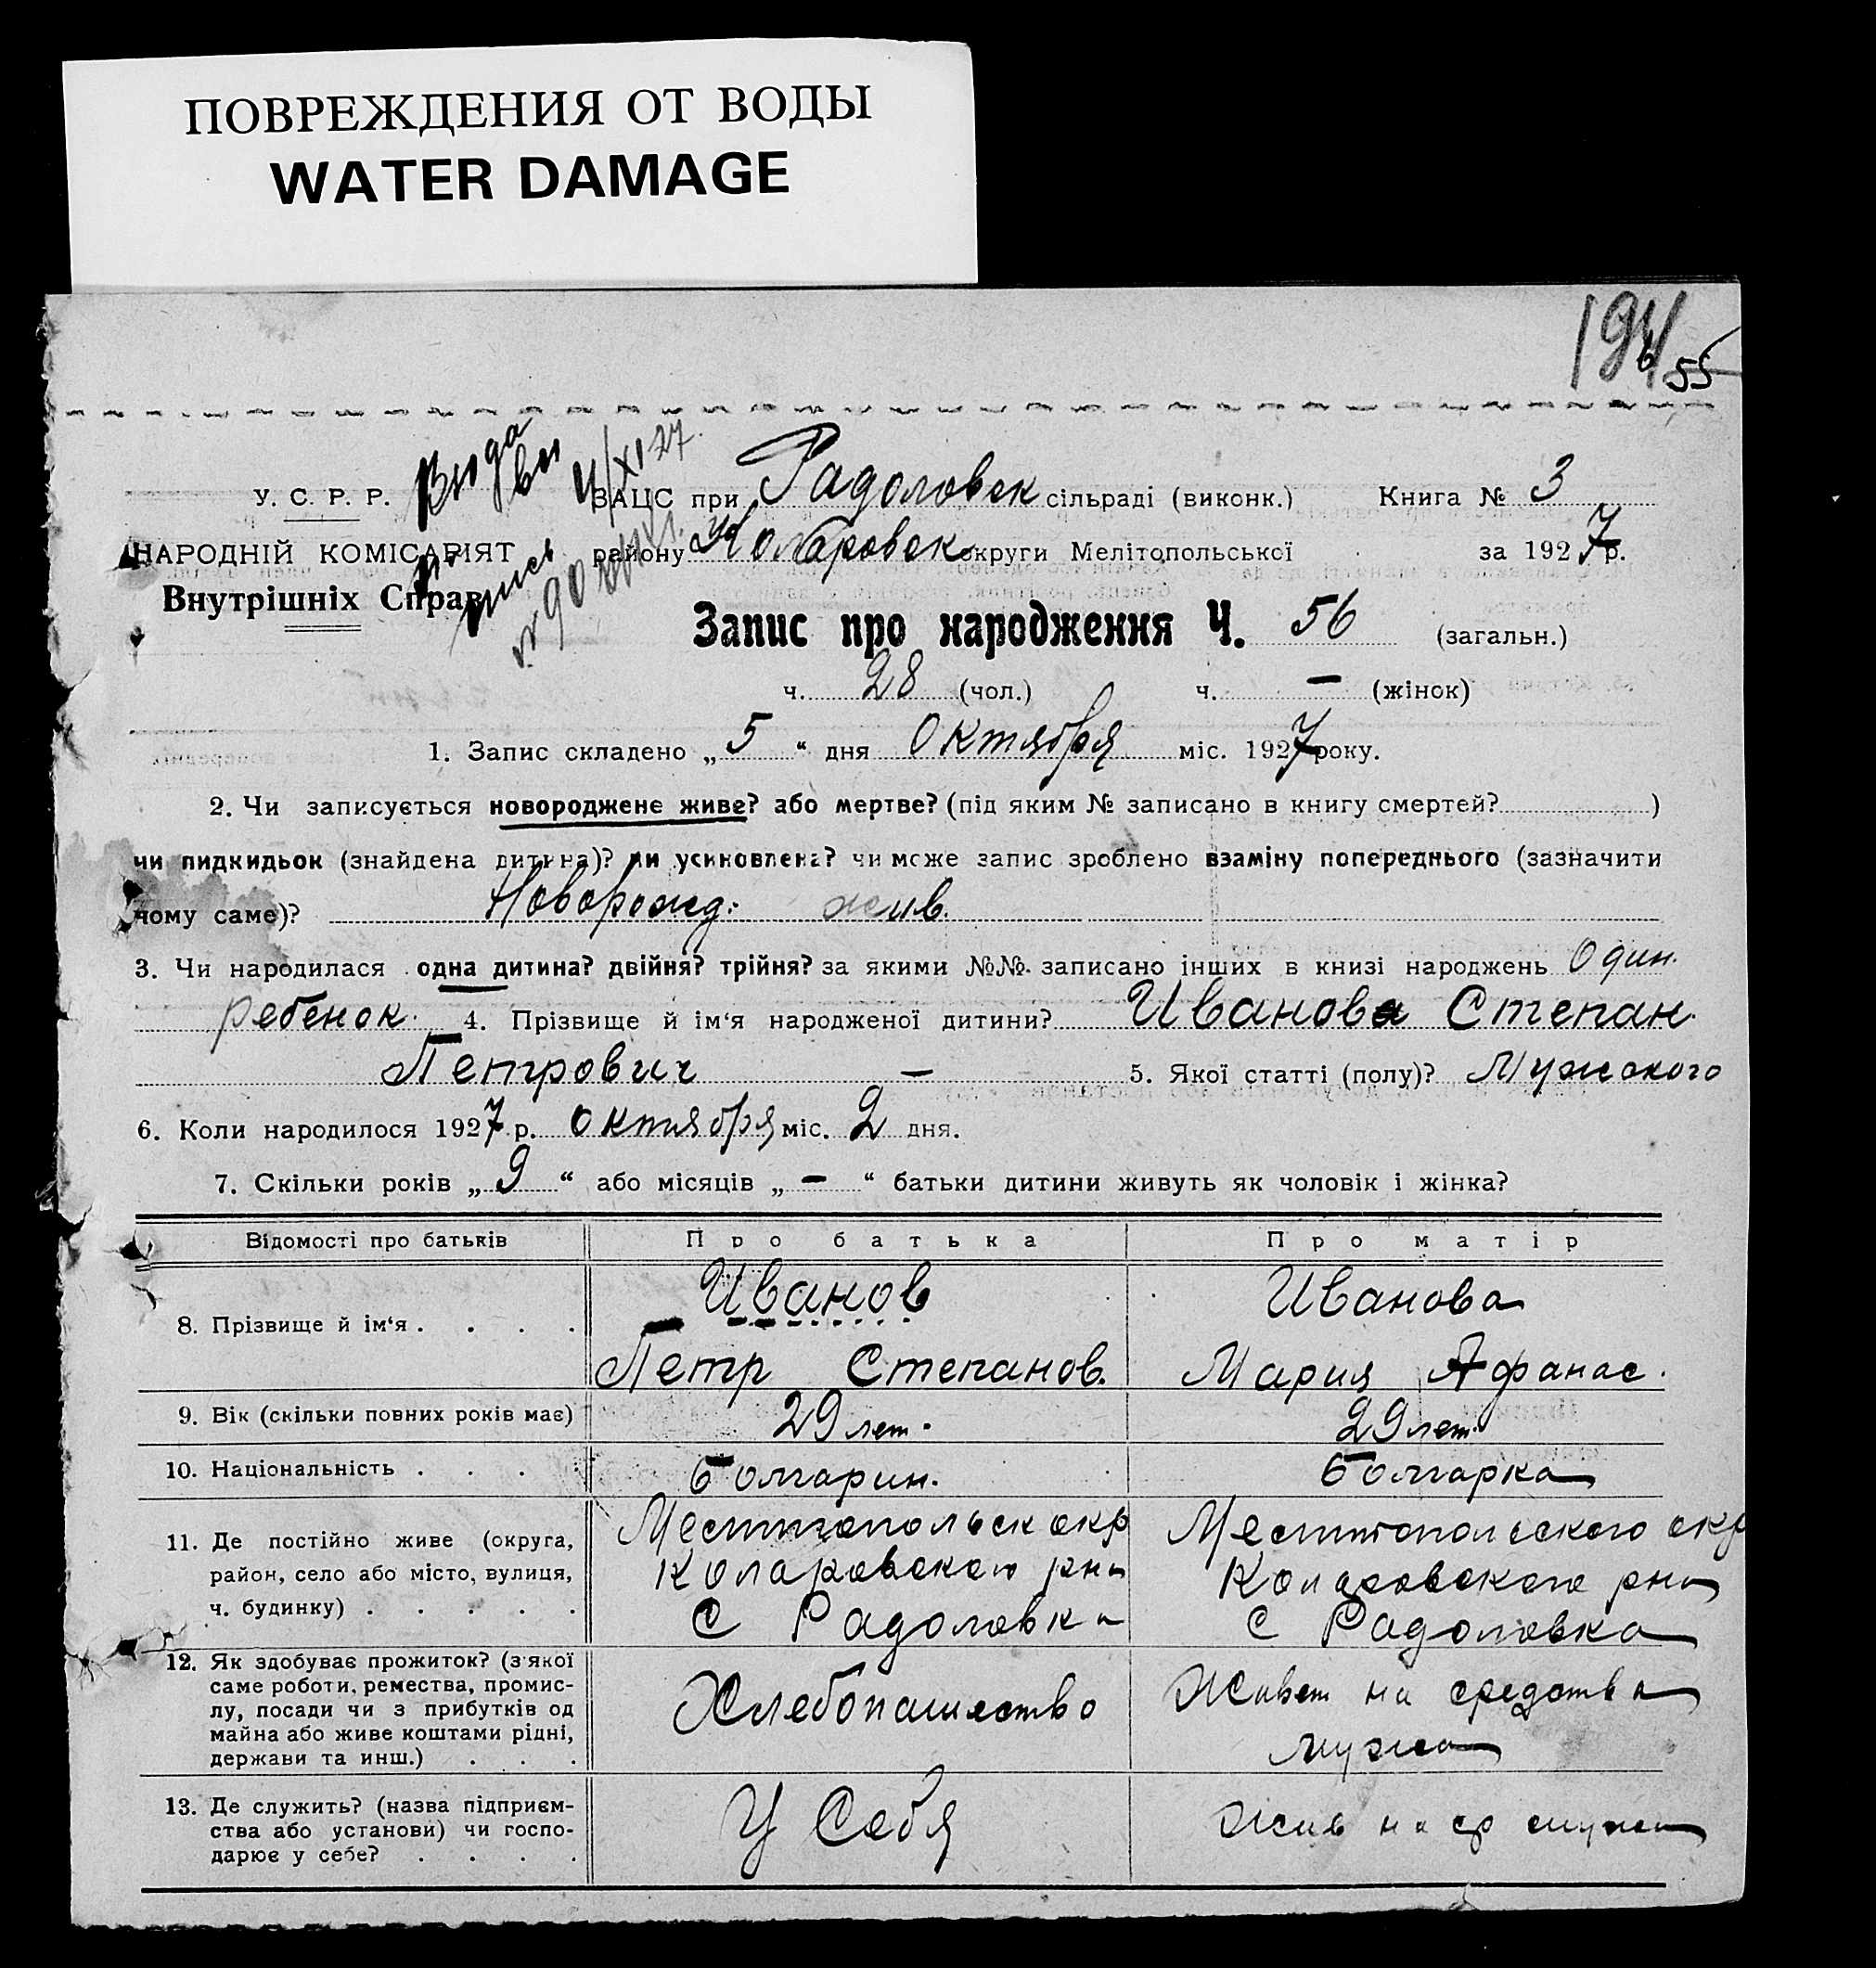 ПОВРЕЖДЕНИЯ ОТ ВОДЫ
WATER DAMAGE
55
У. С. Р. Р.
ЗАЦС при Радоловск сільраді (виконк.) Книга № 3
НАРОДНІЙ КОМІСАРІЯТ
району Коларовск округи Мелітопольської за 1927 р.
Внутрішніх Справ
Запис про народження Ч. 56 (загальн.)
ч. 28 (чол.) ч. — (жінок)
1. Запис складено „ 5 “ дня Октября міс. 1927 року.
2. Чи записується новороджене живе? або мертве? (під яким № записано в книгу смертей? )
чи пидкидьок (знайдена дитина)? чи усиновлена? чи може запис зроблено взаміну попереднього (зазначити
чому саме)? Новорожд: жив.
3. Чи народилася одна дитина? двійня? трійня? за якими №№ записано інших в книзі народжень Один.
ребенок. 4. Прізвище й ім‘я народженої дитини? Иванова Степан.
Петрович — 5. Якої статті (полу)? Мужского
6. Коли народилося 1927 р. Октября міс. 2 дня.
7. Скільки років „ 9 “ або місяців „ — “ батьки дитини живуть як чоловік і жінка?
Відомості про батьків Про батька Про матір
8. Прізвище й ім‘я . . . . Иванов Иванова
Петр Степанов. Мария Афанас.
9. Вік (скільки повних років має) 29 лет. 29 лет.
10. Національність . . . . Болгарин. Болгарка
11. Де постійно живе (округа, район, село або місто, вулиця, ч. будинку) . . . . .
окр окр
Коларовского рна Коларовского рна
С Радоловка С Радоловка
12. Як здобуває прожиток? (з якої
саме роботи, ремества, промис-
лу, посади чи з прибутків од
майна або живе коштами рідні,
держави та инш.) . . .
Хлебопашество Живет на средства
мужа
13. Де служить? (назва підприєм-
ства або установи) чи госпо-
дарює у себе? . . . .
У Себя Жив на ср мужа